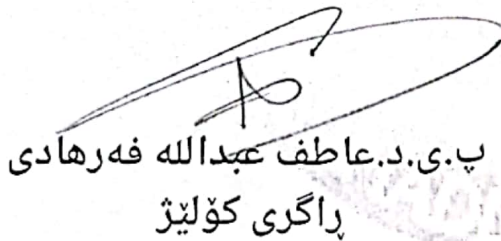 پ.ی.د.عاطف عبدالله فەرهادی
ڕاگری کۆلێژ